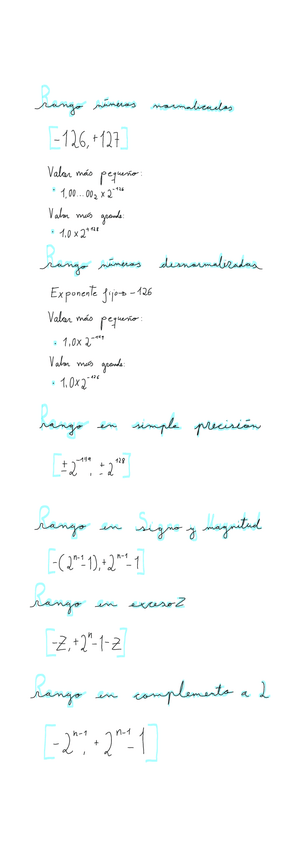 Rango números normalizados
[-126, +127]
Valor más pequeño:
• 1,00...00₂ x 2⁻¹²⁶
Valor mas grande:
• 1.0 x 2⁺¹²⁸
Rango números desnormalizados
Exponente fijo → -126
Valor más pequeño:
• 1,0 x 2⁻¹⁴⁹
Valor mas grande:
• 1,0 x 2⁻¹²⁶
Rango en simple precisión
[± 2⁻¹⁴⁹, ± 2¹²⁸]
Rango en Signo y Magnitud
[-(2ⁿ⁻¹-1), +2ⁿ⁻¹-1]
Rango en exceso Z
[-Z, +2ⁿ-1-Z]
Rango en complemento a 2
[-2ⁿ⁻¹, +2ⁿ⁻¹-1]